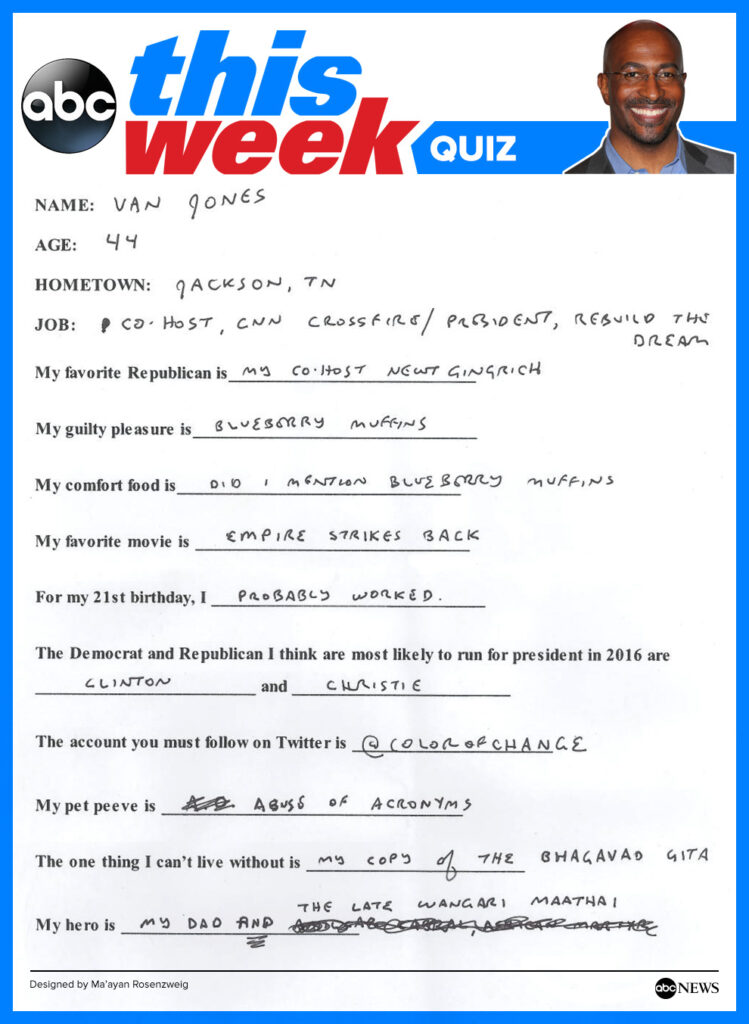 abc this
week QUIZ
NAME: VAN JONES
AGE: 44
HOMETOWN: JACKSON, TN
JOB: CO-HOST, CNN CROSSFIRE/ PRESIDENT, REBUILD THE
DREAM
My favorite Republican is MY CO-HOST NEWT GINGRICH
My guilty pleasure is BLUEBERRY MUFFINS
My comfort food is DID I MENTION BLUEBERRY MUFFINS
My favorite movie is EMPIRE STRIKES BACK
For my 21st birthday, I PROBABLY WORKED.
The Democrat and Republican I think are most likely to run for president in 2016 are
CLINTON and CHRISTIE
The account you must follow on Twitter is @COLOROFCHANGE
My pet peeve is ABUSE OF ACRONYMS
The one thing I can't live without is MY COPY of THE BHAGAVAD GITA
THE LATE WANGARI MAATHAI
My hero is MY DAD AND
Designed by Ma'ayan Rosenzweig
abc NEWS